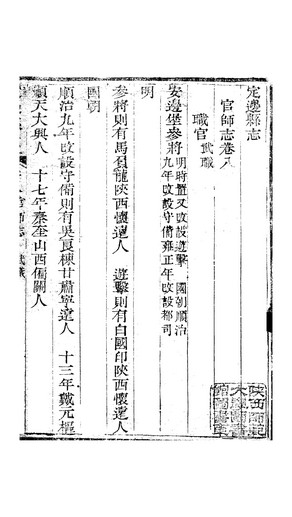 定邊縣志
官師志卷八
職官武職
安邊堡參將明時置又改設遊擊國朝順治
九年改設守備雍正年改設都司
明
參將則有馬負龍陝西懷遠人 遊擊則有白國印陝西懷遠人
國朝
順治九年改設守備則有吳良棟甘肅寧遠人 十三年戴元樞
順天大興人 十七年秦奎山西偏關人